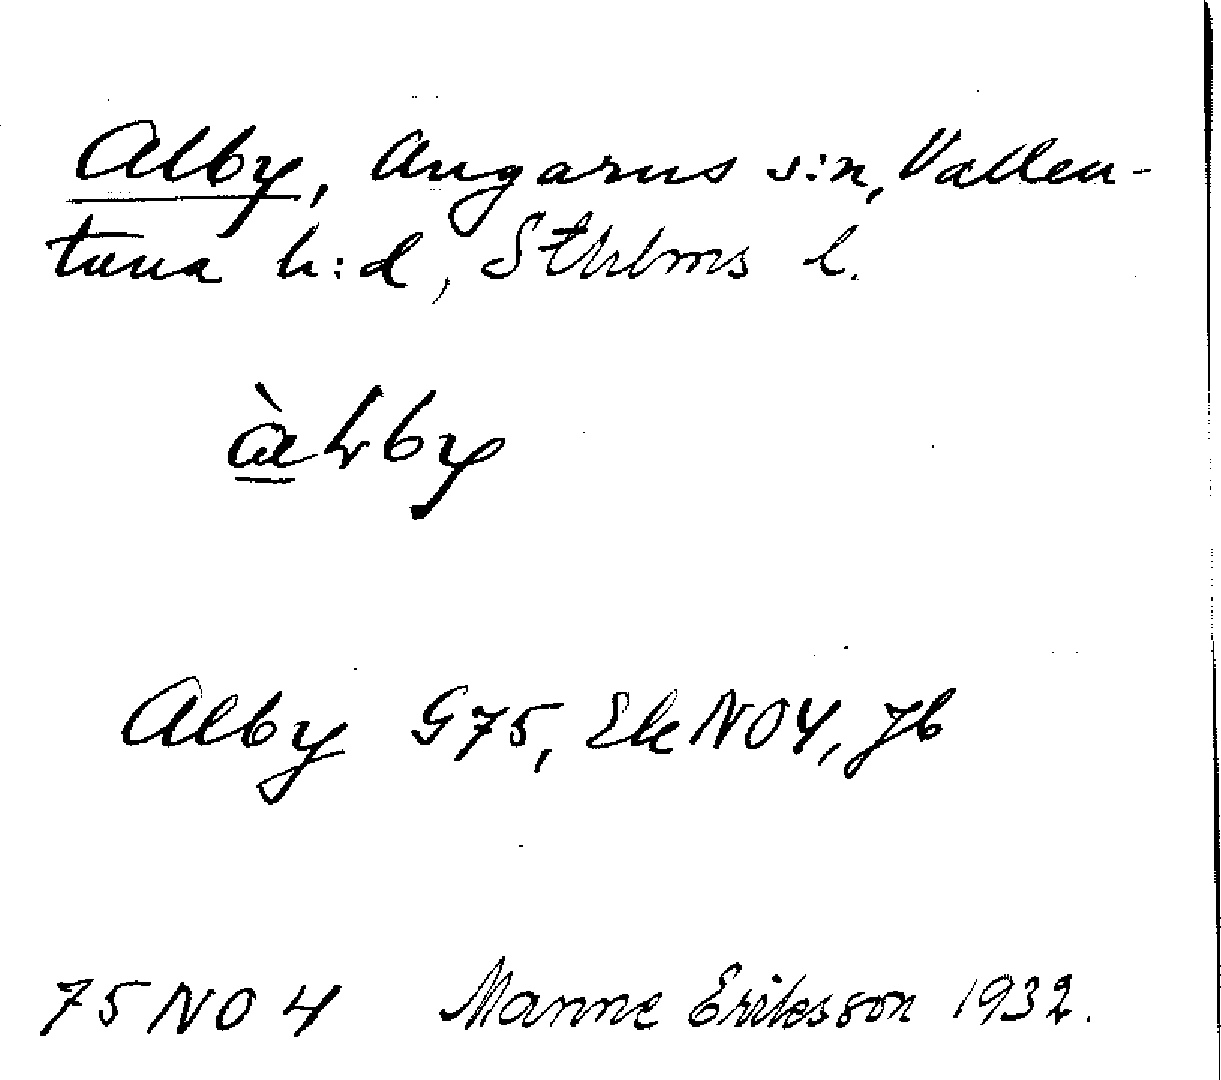 Alby, Angarns s:n, Vallen-
tuna h:d, Sthlms l.
Alby G75, Ek NO4, Jb
75 NO 4 Manne Eriksson 1932.